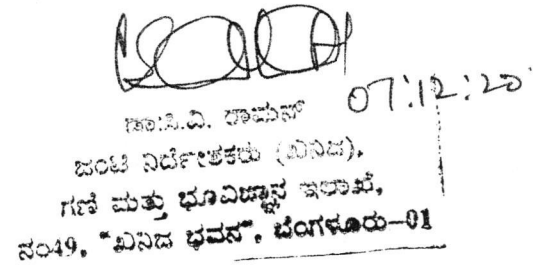 07:12:20
ಡಾ:ಸಿ.ವಿ. ರಾಮನ್
ಜಂಟಿ ನಿರ್ದೇಶಕರು (ಖನಿಜ),
ಗಣಿ ಮತ್ತು ಭೂವಿಜ್ಞಾನ ಇಲಾಖೆ,
ನಂ49, "ಖನಿಜ ಭವನ", ಬೆಂಗಳೂರು-01